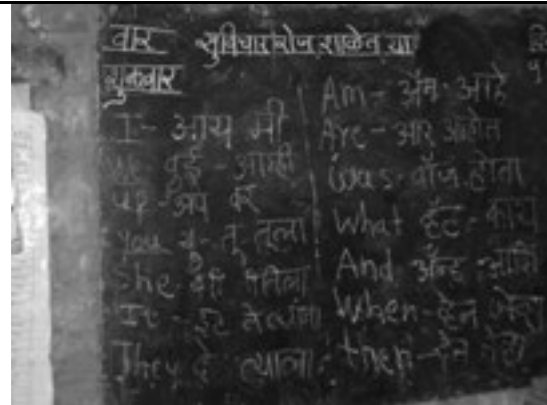 वार सुविचार रोज शाळेत या
शुक्रवार
I - आय मी
We वुई - आम्ही
up - अप वर
you यु - तू तुला
She शी तिला
It - इट
They दे त्याला
Am - ॲम आहे
Are - आर आहेत
Was - वॉज होता
What हॅट - काय
And ॲन्ड आणि
When - व्हेन जेव्हा
then - देन तेव्हा